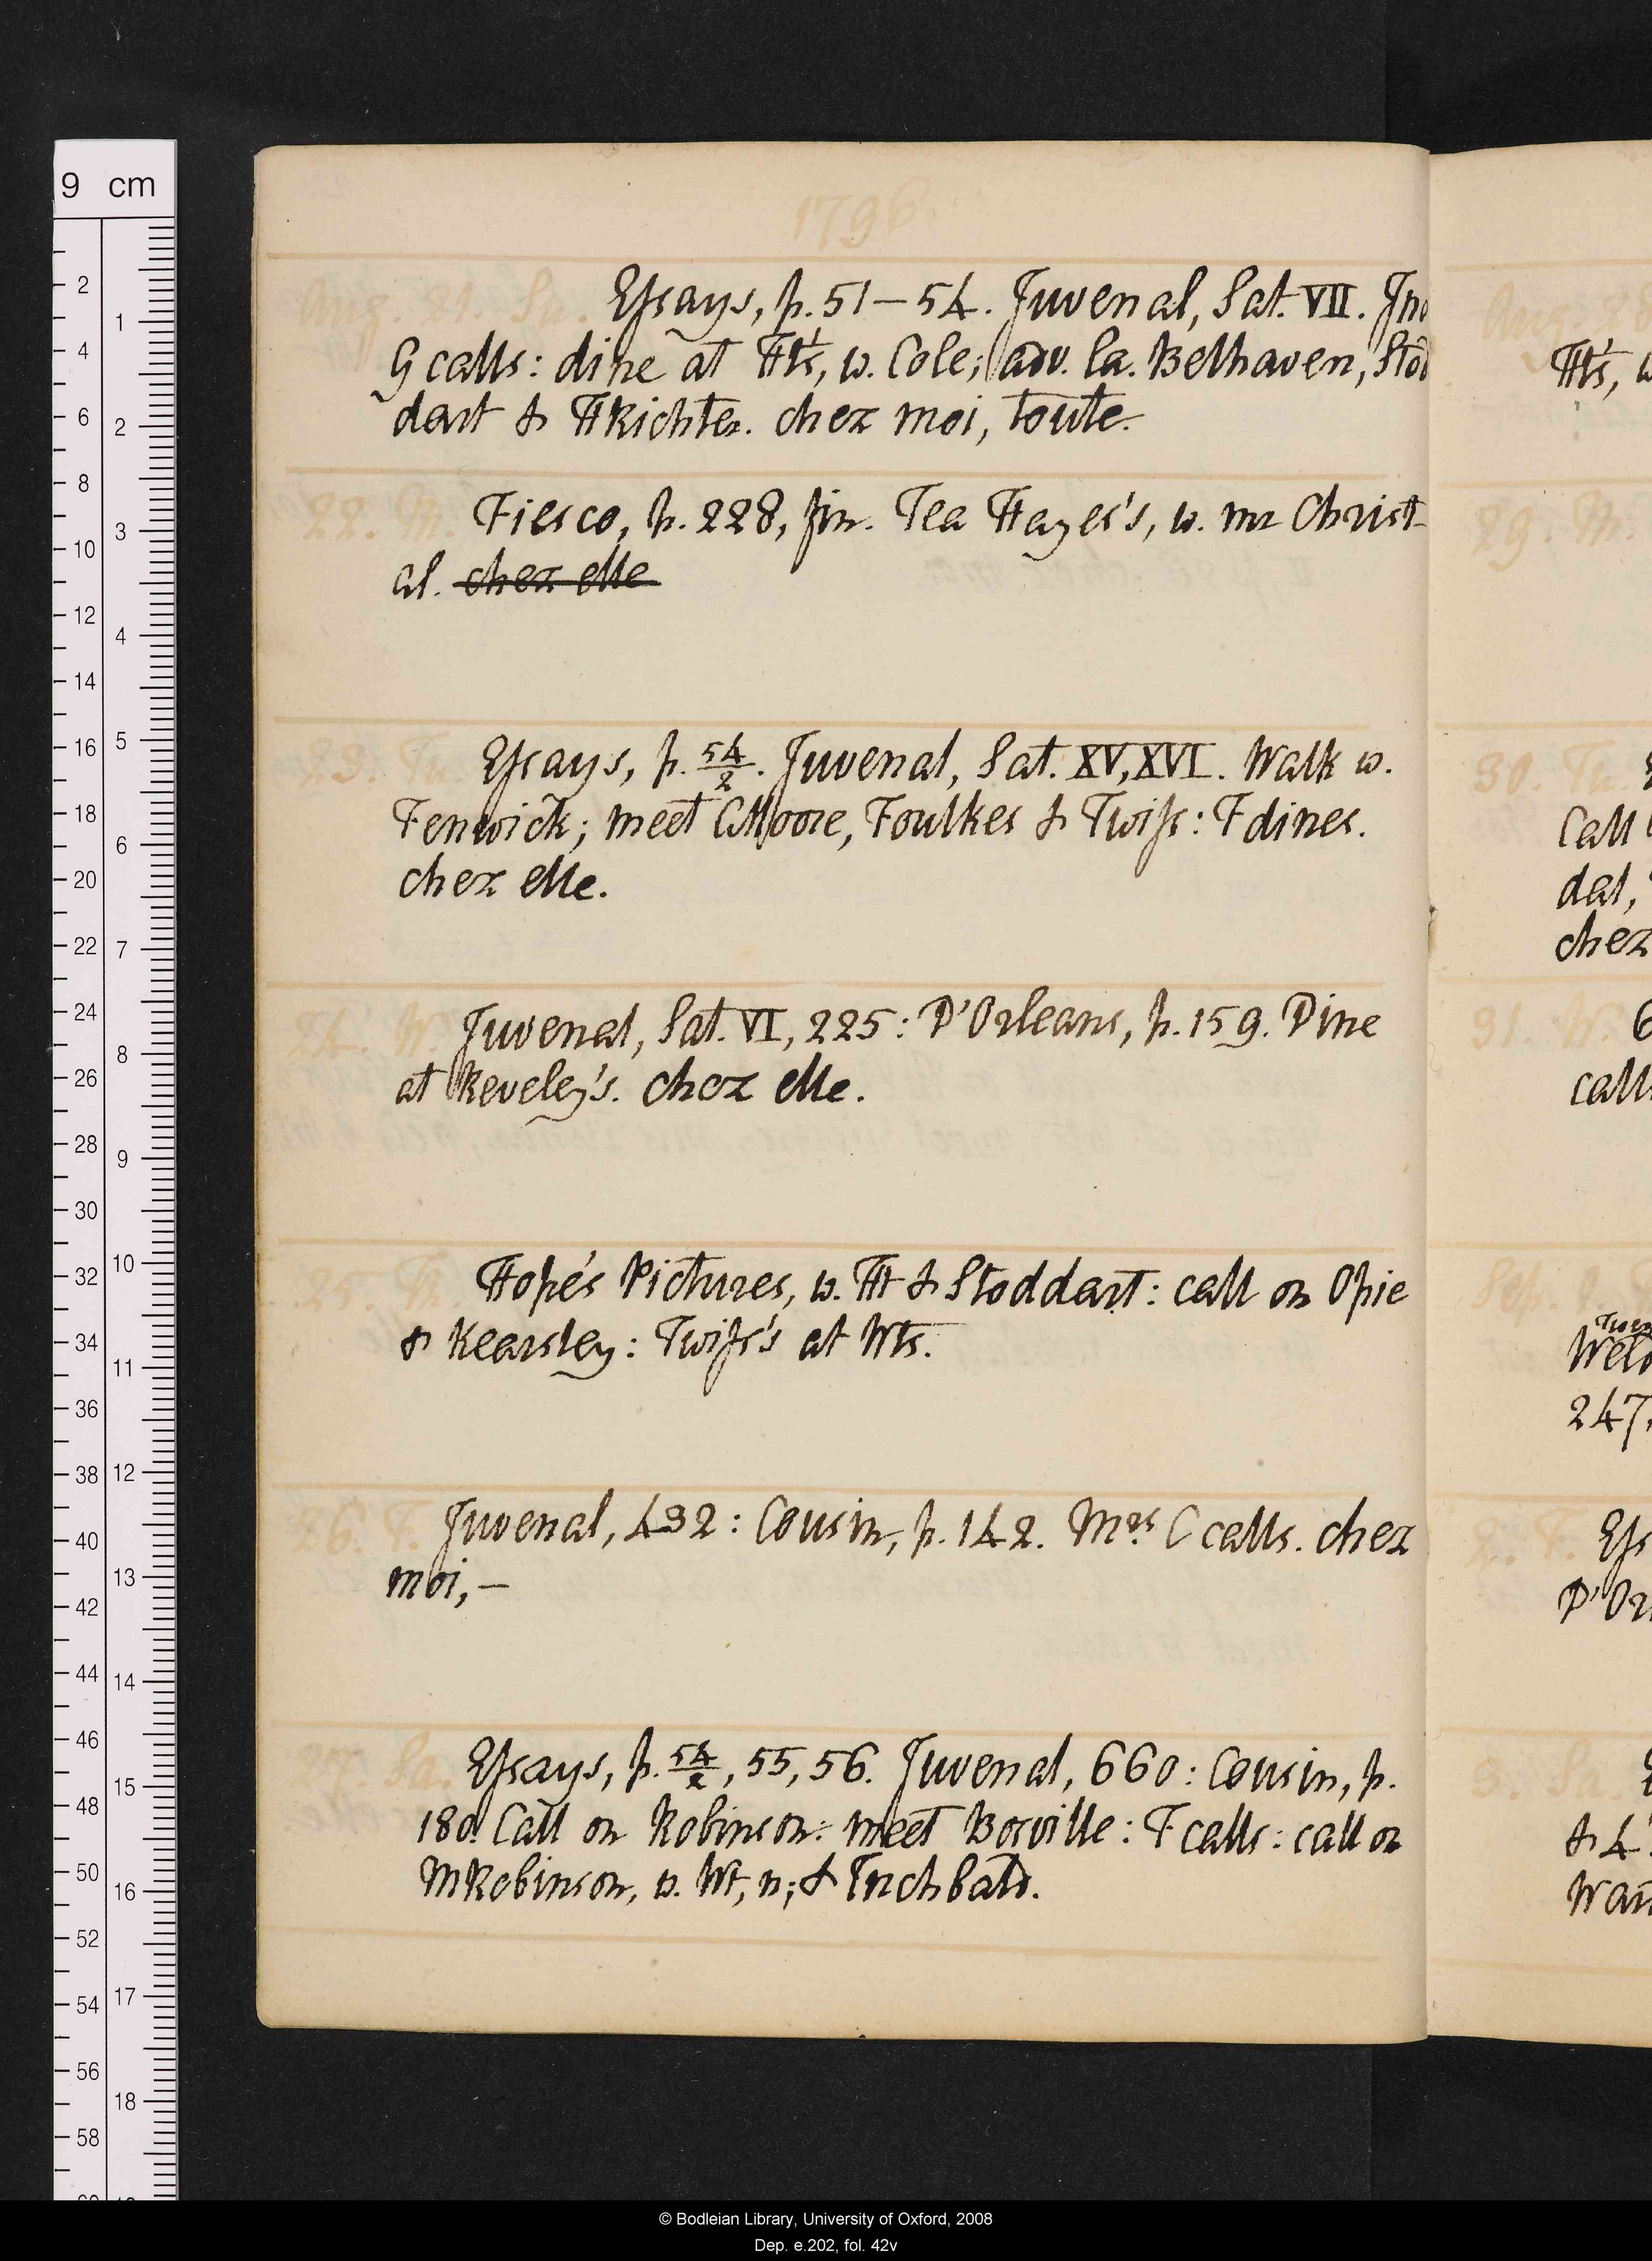 1796
Aug. 21. Su. Essays, p. 51–54. Juvenal, Sat. VII. Jno
G calls: dine at Ht's, w. Cole; adv. La. Belhaven, Stod
dart & HRichter. chez moi, toute.
22. M. Fiesco, p. 228, fin. Tea Hayes's, w. mr Christ-
al. chez elle
23. Tu. Essays, p. 54/2. Juvenal, Sat. XV, XVI. Walk w.
Fenwick; meet CMoore, Foulkes & Twiss: F dines.
chez elle.
24. W. Juvenal, Sat. VI, 225: D'Orleans, p. 159. Dine
at Reveley's. chez elle.
25. Th. Hope's Pictures, w. Ht & Stoddart: call on Opie
& Kearsley: Twiss's at Wts.
26. F. Juvenal, 432: Cousin, p. 142. Mrs C calls. chez
moi,–
27. Sa. Essays, p. 54/2, 55, 56. Juvenal, 660: Cousin, p.
180. Call on Robinson: meet Bosville: F calls: call on
MRobinson, w. Wt, n; & Inchbald.
Aug. 28
Ht's, w
29. M.
30. Tu.
Call
dal,
chez
31. W.
call
Sep. 1.
Weld
247.
2. F. Ess
D'Or
3. Sa.
& 4
9 cm
2
4
6
8
10
12
14
16
18
20
22
24
26
28
30
32
34
36
38
40
42
44
46
48
50
52
54
56
58
1
2
3
4
5
6
7
8
9
10
11
12
13
14
15
16
17
18
© Bodleian Library, University of Oxford, 2008
Dep. e.202, fol. 42v